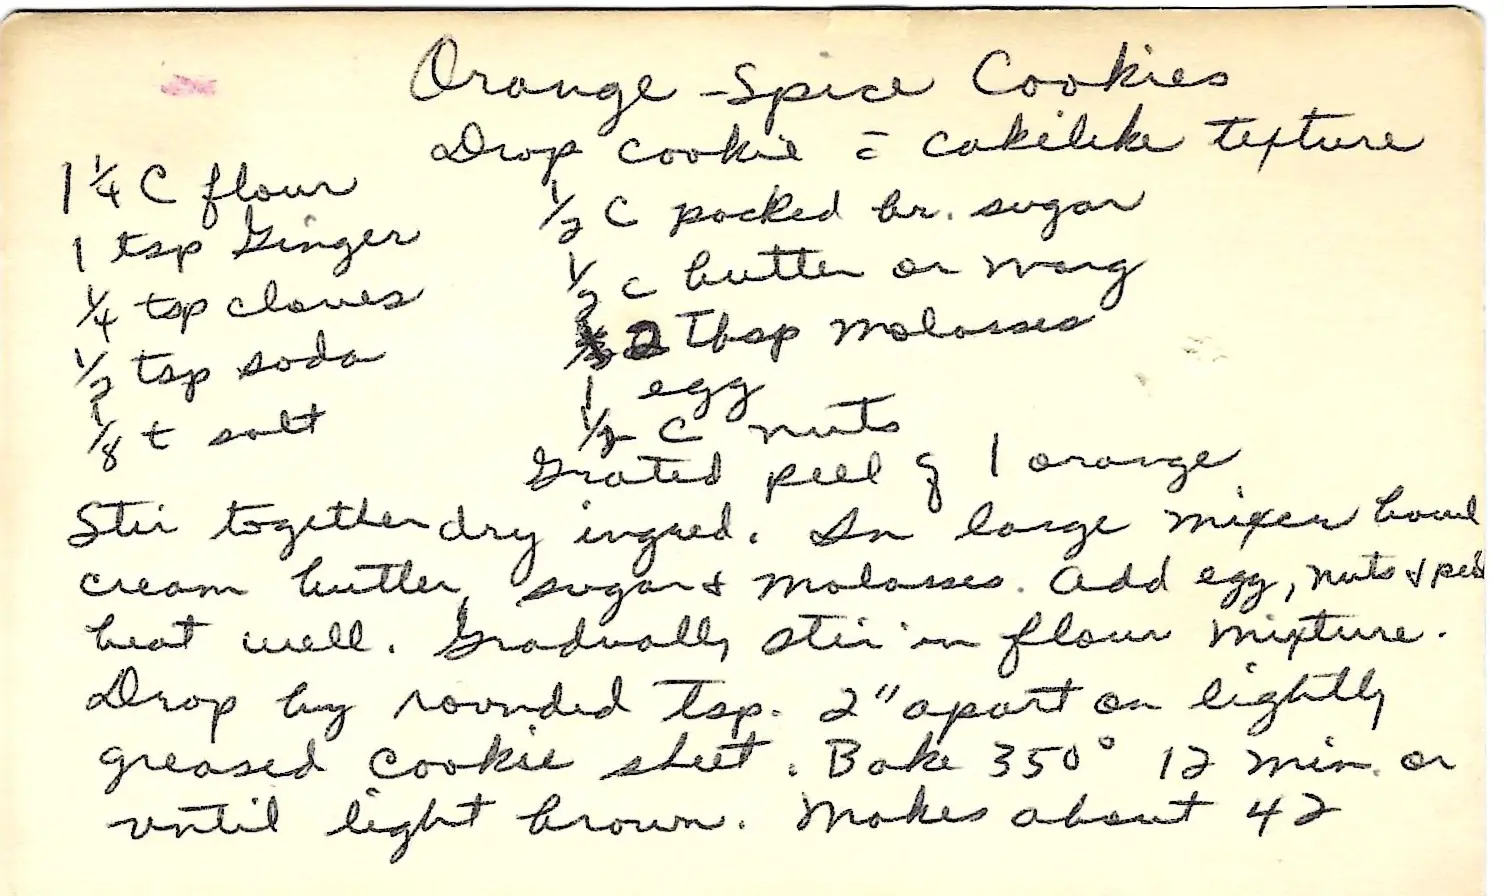 Orange-Spice Cookies
Drop cookie = cakelike texture
1 1/4 C flour
1 tsp Ginger
1/4 tsp cloves
1/2 tsp soda
1/8 t salt
1/2 C packed br. sugar
1/2 c butter or marg
2 Tbsp molasses
1 egg
1/2 C nuts
Grated peel of 1 orange
Stir together dry ingred. In large mixer bowl
cream butter, sugar & molasses. Add egg, nuts & peel
beat well. Gradually stir in flour mixture.
Drop by rounded tsp. 2" apart on lightly
greased cookie sheet. Bake 350° 12 min. or
until light brown. Makes about 42